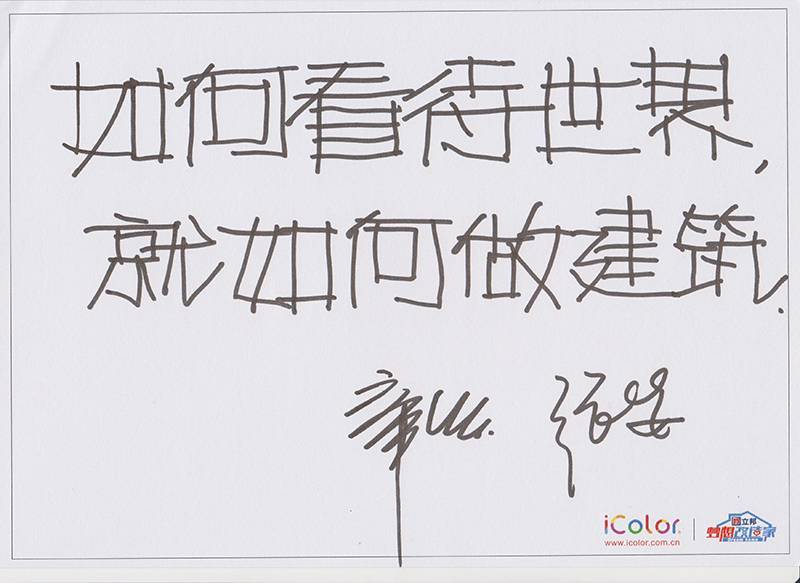 如何看待世界，
就如何做建筑.
iColor
www.icolor.com.cn
立邦
梦想改造家